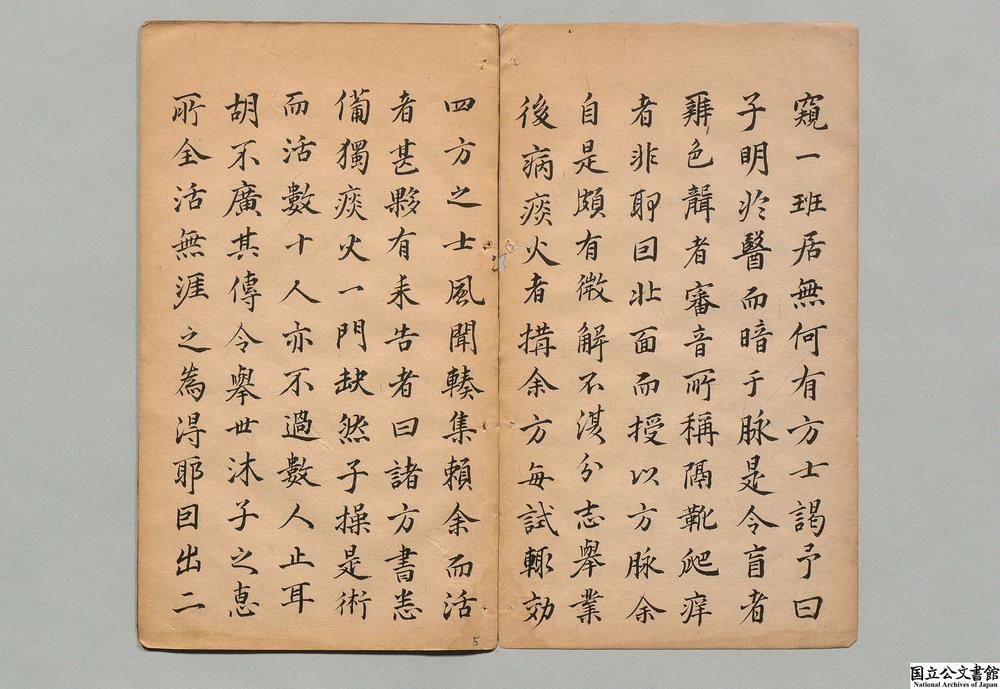 窺一班居無何有方士謁予曰
子明於醫而暗于脉是令盲者
辨色聾者審音所稱隔靴爬痒
者非耶囙北面而授以方脉余
自是頗有微解不淂分志舉業
後病痰火者搆余方每試輒効
四方之士風聞輳集賴余而活
者甚夥有来告者曰諸方書悉
備獨痰火一門缺然子操是術
而活數十人亦不過數人止耳
胡不廣其傳令舉世沐子之惠
所全活無涯之為淂耶囙出二
5
国立公文書館
National Archives of Japan